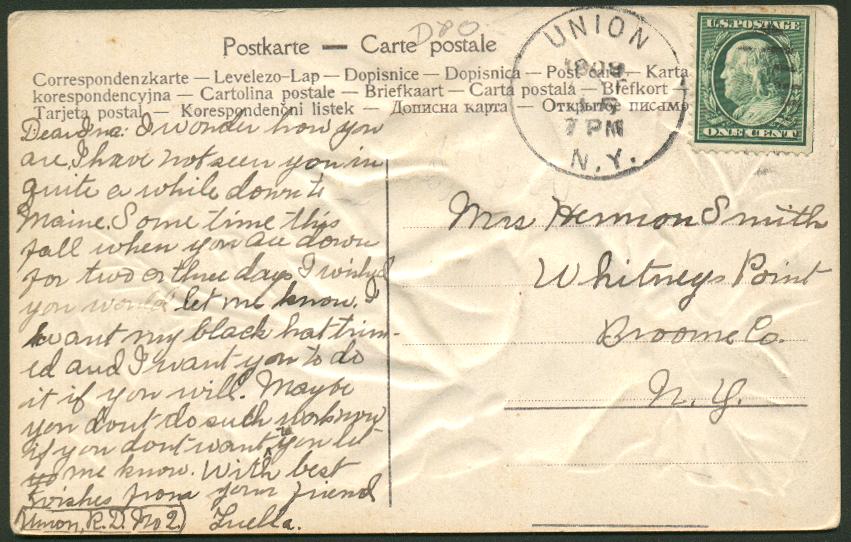 DPO
Postkarte — Carte postale
Correspondenzkarte — Levelezo-Lap — Dopisnice — Dopisnica — Post card — Karta
korespondencyjna — Cartolina postale — Briefkaart — Carta postalá — Brefkort —
Tarjeta postal — Korespondenčni listek — Дописна карта — Открытое писамо
UNION
7 PM
N.Y.
U.S. POSTAGE
ONE CENT
Dear Ina: I wonder how you
are, I have not seen you in
quite a while down to
Maine. Some time this
fall when you are down
for two or three days I wished
you would let me know. I
want my black hat trim-
ed and I want you to do
it if you will. Maybe
you dont do such work now
if you dont want to you let
me know. With best
wishes from your friend
Union, R.D. No 2. Luella.
Mrs Hermon Smith
Whitneys Point
Broome Co.
N. Y.